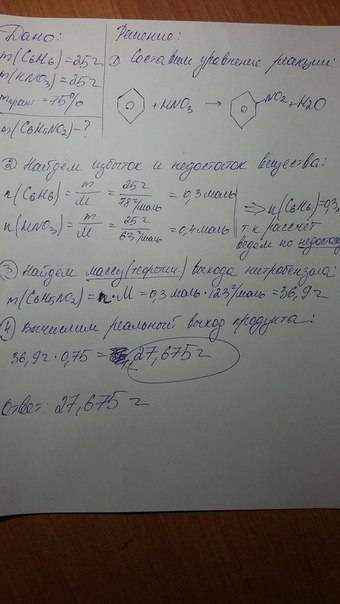 Дано:
m(C6H6)=25г
m(HNO3)=25г
mпракт=75%
m(C6H5NO2)-?
Решение:
① Составим уравнение реакции:
+ HNO3 → NO2 + H2O
② Найдём избыток и недостаток вещества:
n(C6H6) = m/M = 25г/78г/моль = 0,3 моль
n(HNO3) = m/M = 25г/63г/моль = 0,4 моль
⇒ n(C6H6)=0,3
т.к рассчёт
ведём по недостат
③ Найдём массу(теоретич.) выхода нитробензола:
m(C6H5NO2) = n·M = 0,3 моль·123г/моль = 36,9г
④ Вычислим реальный выход продукта:
36,9г · 0,75 = 27,675 г
Ответ: 27,675 г